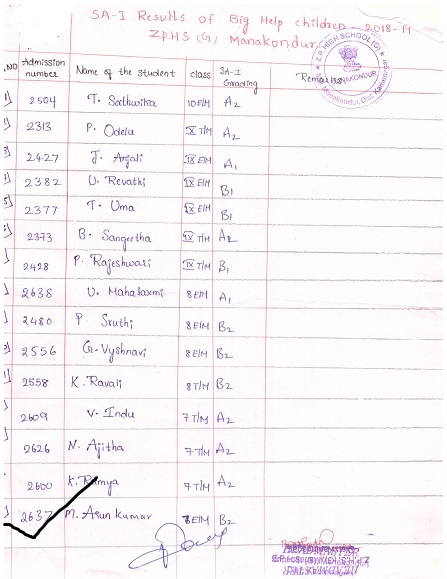 SA-I Results of Big Help children - 2018-19
ZPHS (G) Manakondur
S.NO Admission number Name of the student class SA-I Grading Remarks
2504 T. Sathwika 10 E/M A2
2313 P. Odelu X T/M A2
2427 J. Anjali IX E/M A1
2382 U. Revathi IX E/M B1
2377 T. Uma IX E/M B1
2373 B. Sangeetha IX T/M A2
2428 P. Rajeshwari IX T/M B1
2638 U. Mahalaxmi 8 E/M A1
2480 P Sruthi 8 E/M B2
2556 G. Vyshnavi 8 E/M B2
2558 K. Ravali 8 T/M B2
2609 V. Indu 7 T/M A2
2626 N. Ajitha 7 T/M A2
2600 K. Ramya 7 T/M A2
2637 M. Arun Kumar 8 E/M B2